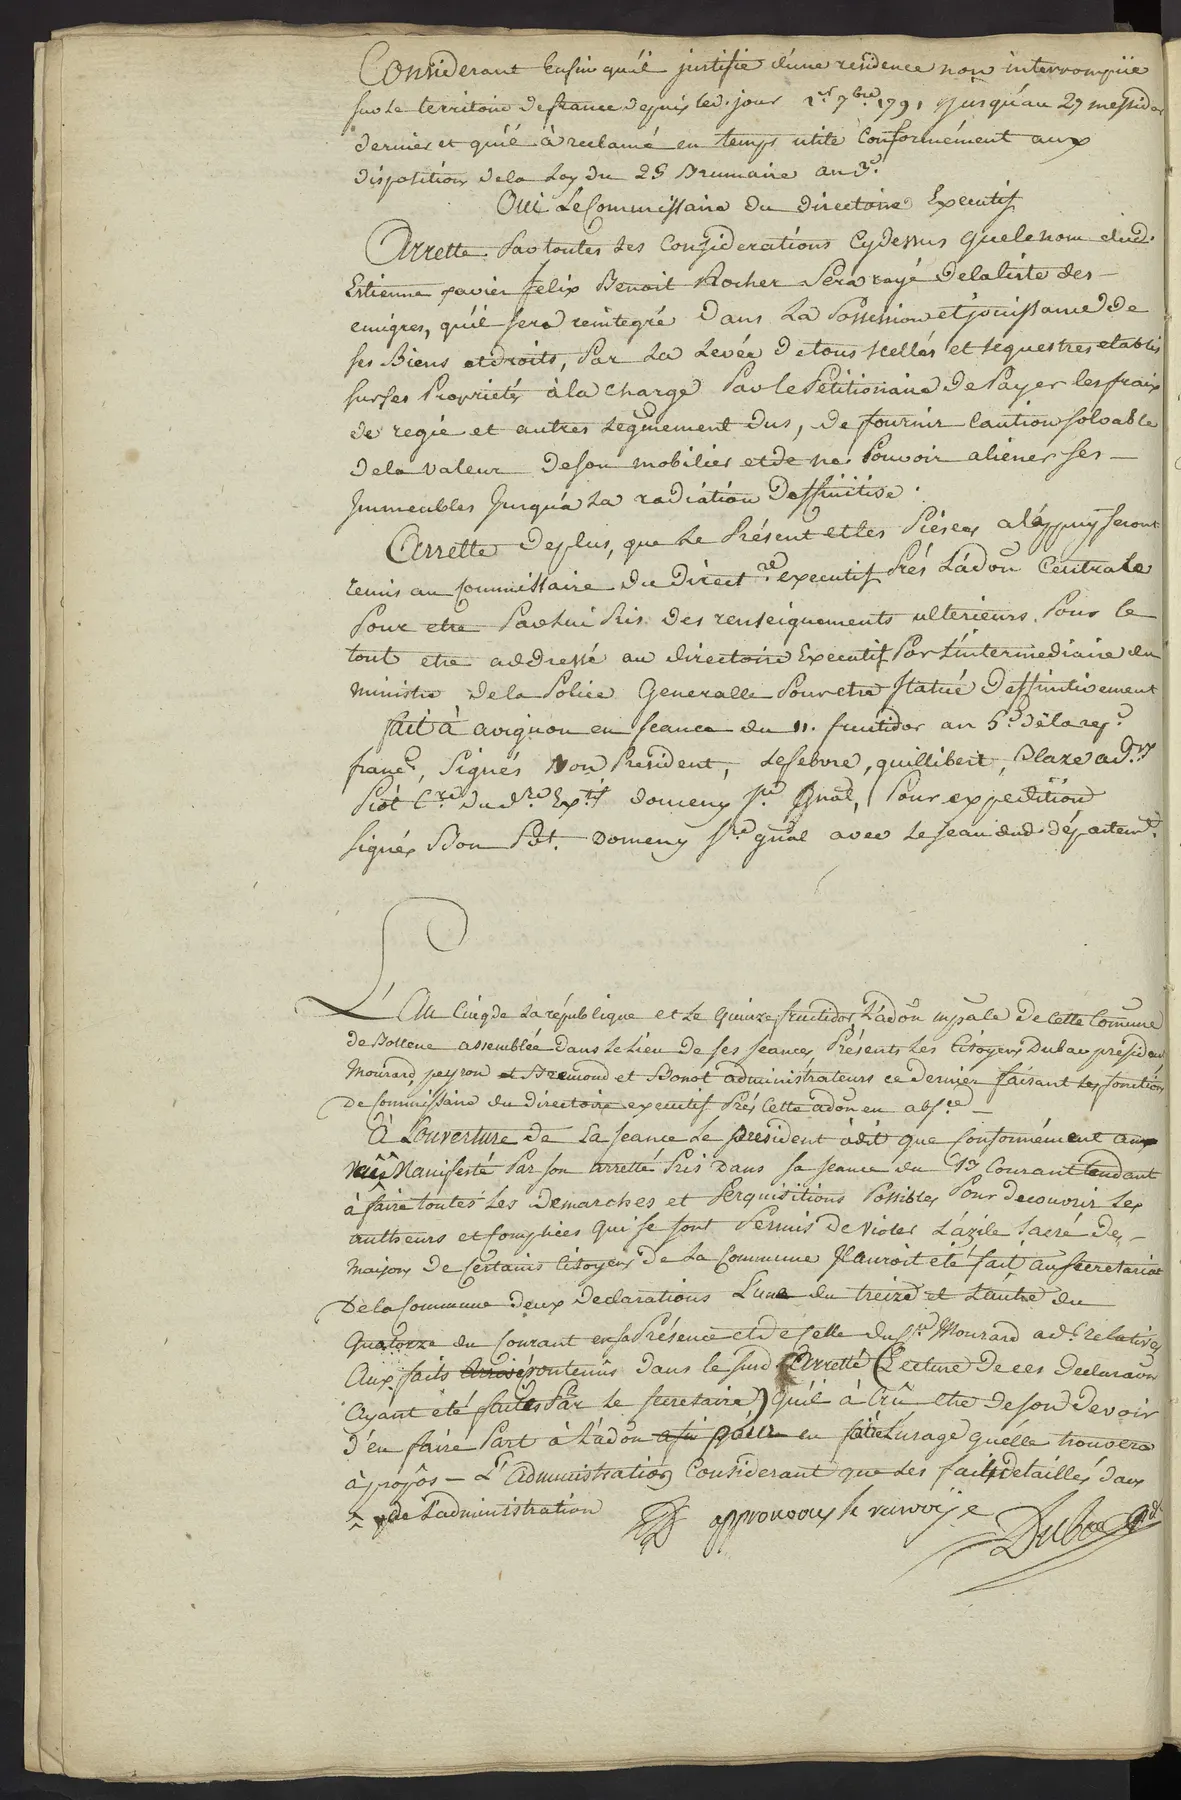 Considerant Enfin qu'il justifie d'une residence non interrompüe
sur le territoire de france depuis led. jour 1er 7bre 1791 jusqu'au 29 messidor
dernier et qu'il à reclamé en temps utile conformément aux
disposition de la Loy du 25 Brumaire an 3e.
Oui Le Commissaire du directoire Executif
Arrette Par toutes Les Considerations Cydessus que le nom dud.
Estienne xavier felix Benoit Rocher Sera rayé de la liste des
emigres, qu'il sera reintegré dans La Possession et jouissance de
ses Biens et droits, Par La Levée De tous scellés et sequestres etablis
sur ses Proprietés à la charge Par le Pétitionaire de Payer les fraix
de regie et autres legmement dus, de fournir Caution solvable
de la valeur de son mobilier et de ne Pouvoir aliener ses
Immeubles Jusqu'a La radiation Deffinitive.
Arrette deplus, que Le Présent et les Piéses a l'appuy seront
remis au Commissaire du direct.re executif Prés L'adon Centrale
Pour etre Par Lui Pris des renseignements ulterieurs Pour le
tout etre addressé au directoire Executif Par L'intermediaire du
ministre de la Police Generalle Pour etre Statué Deffinitivement
fait à avignon en seance du 11. fructidor an 5e de la rep.e
franc.e, Signés Bon President, Lefebvre, quillibert, Plaze ad.rs
Piot C.re du d.re Ex.tif Domeny s.re gnal, Pour expedition
Signés Bon Pdt. Domeny s.re gnal avec Le sceau dud. départemt.
L'An Cinq de La république et Le Quinze fructidor, L'adon mpale de Cette Comune
de Bollene assemblée dans Le Lieu de ses séances, Présents Les Citoyens Dubac président
Mourard, peyron et Bremond et Bonot administrateurs ce dernier faisant Les fonctions
de Commissaire du directoire executif Prés Cette adon en absce
à L'ouverture de La seance Le president à dit que Conformément aux
vües Manifesté Par son arretté Pris dans sa seance du 13 Courant tendant
à faire toutes Les demarches et Perquisitions Possibles Pour decouvrir Les
autheurs et Complices qui se sont Permis de violer L'azile Sacré Des
Maisons de Certains Citoyens de La Commune Il auroit été fait au Secretariat
De la Commune deux declarations L'une du treize et L'autre du
Quatorze du Courant en sa Présence et de Celle du Cn Mourard ad.r relatives
Aux faits contenûs dans le susd. Arretté (Lecture de ces declaraons
Ayant été faites Par le secretaire) qu'il à Crû etre de son devoir
d'en faire Part à L'adon pour en faire L'usage qu'elle trouvera
à propôs - L'Administration Considerant que Les faits detaillés dans
de L'administration
approuvons le renvoy
Dubac Pdt